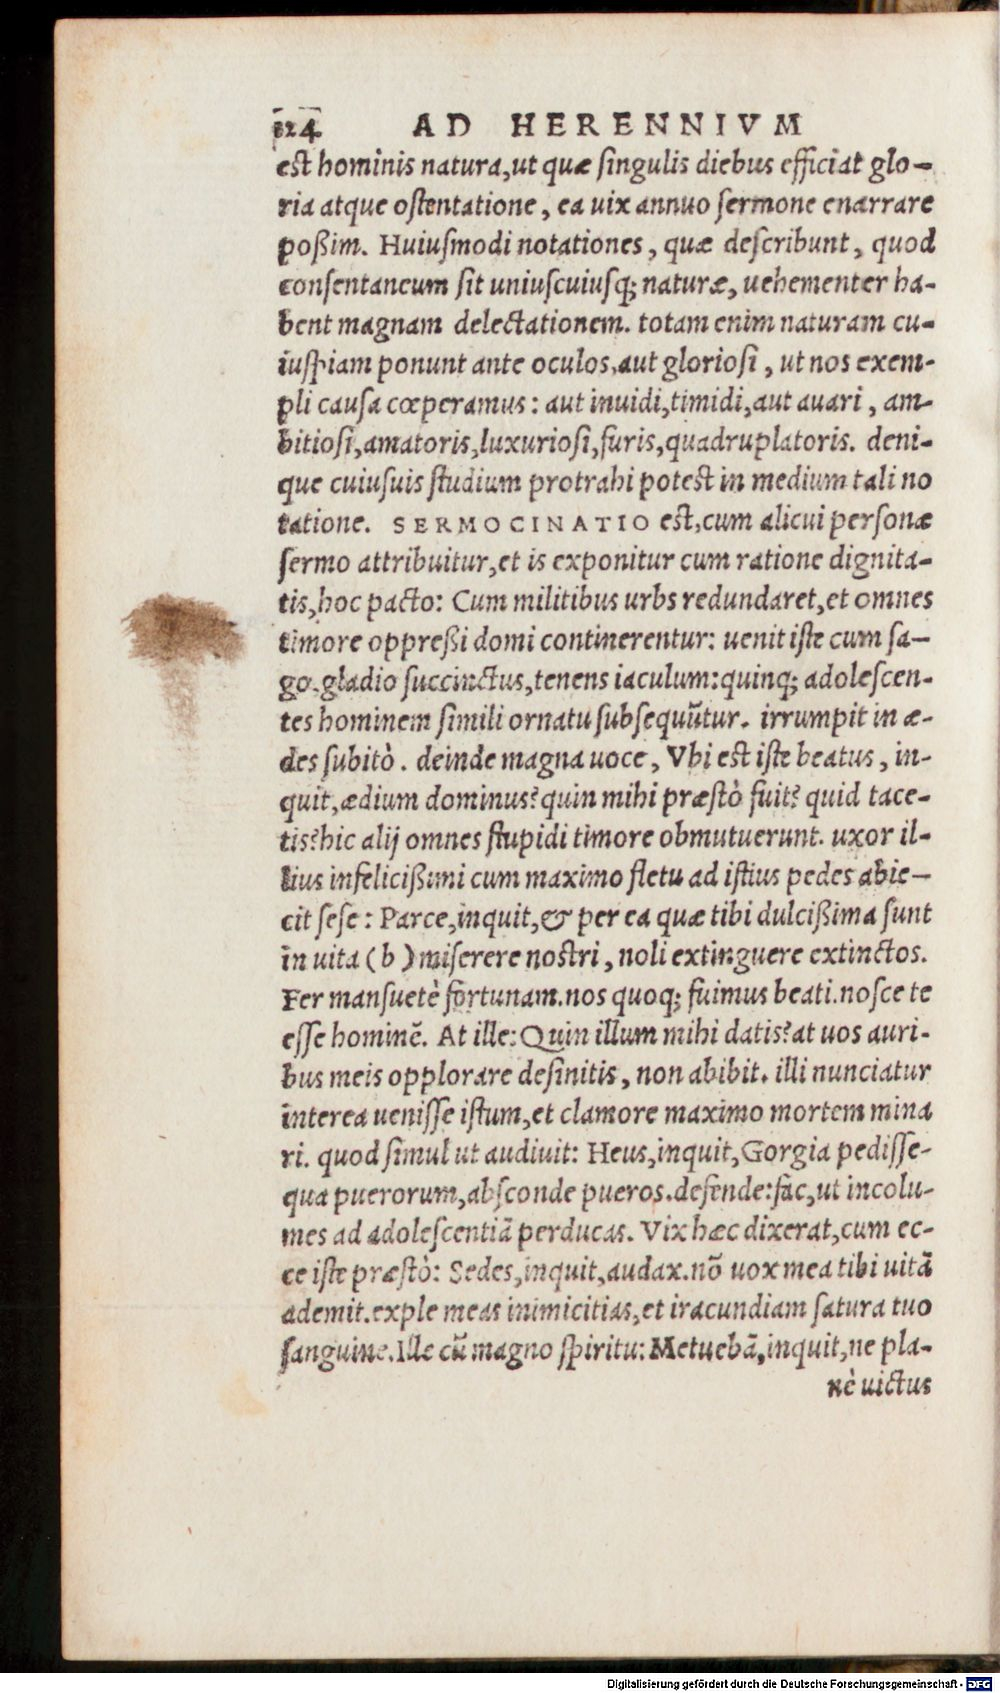 124 AD HERENNIVM
est hominis natura, ut quæ singulis diebus efficiat glo-
ria atque ostentatione, ea uix annuo sermone enarrare
poßim. Huiusmodi notationes, quæ describunt, quod
consentaneum sit uniuscuiusq; naturæ, uehementer ha-
bent magnam delectationem. totam enim naturam cu-
iuspiam ponunt ante oculos, aut gloriosi, ut nos exem-
pli causa cœperamus: aut inuidi, timidi, aut auari, am-
bitiosi, amatoris, luxuriosi, furis, quadruplatoris. deni-
que cuiusuis studium protrahi potest in medium tali no
tatione. SERMOCINATIO est, cum alicui personæ
sermo attribuitur, et is exponitur cum ratione dignita-
tis, hoc pacto: Cum militibus urbs redundaret, et omnes
timore oppreßi domi continerentur: uenit iste cum sa-
go, gladio succinctus, tenens iaculum: quinq; adolescen-
tes hominem simili ornatu subsequūtur. irrumpit in æ-
des subitò. deinde magna uoce, Vbi est iste beatus, in-
quit, ædium dominus? quin mihi præstò fuit? quid tace-
tis? hic alij omnes stupidi timore obmutuerunt. uxor il-
lius infelicißimi cum maximo fletu ad istius pedes abie-
cit sese: Parce, inquit, & per ea quæ tibi dulcißima sunt
in uita (b) miserere nostri, noli extinguere extinctos.
Fer mansuetè fortunam. nos quoq; fuimus beati. nosce te
esse hominē. At ille: Quin illum mihi datis? at uos auri-
bus meis opplorare desinitis, non abibit. illi nunciatur
interea uenisse istum, et clamore maximo mortem mina
ri. quod simul ut audiuit: Heus, inquit, Gorgia pedisse-
qua puerorum, absconde pueros. defende: fac, ut incolu-
mes ad adolescentiā perducas. Vix hæc dixerat, cum ec-
ce iste præstò: Sedes, inquit, audax. nō uox mea tibi uitā
ademit. exple meas inimicitias, et iracundiam satura tuo
sanguine. Ille cū magno spiritu: Metuebā, inquit, ne pla-
nè uictus
Digitalisierung gefördert durch die Deutsche Forschungsgemeinschaft - DFG